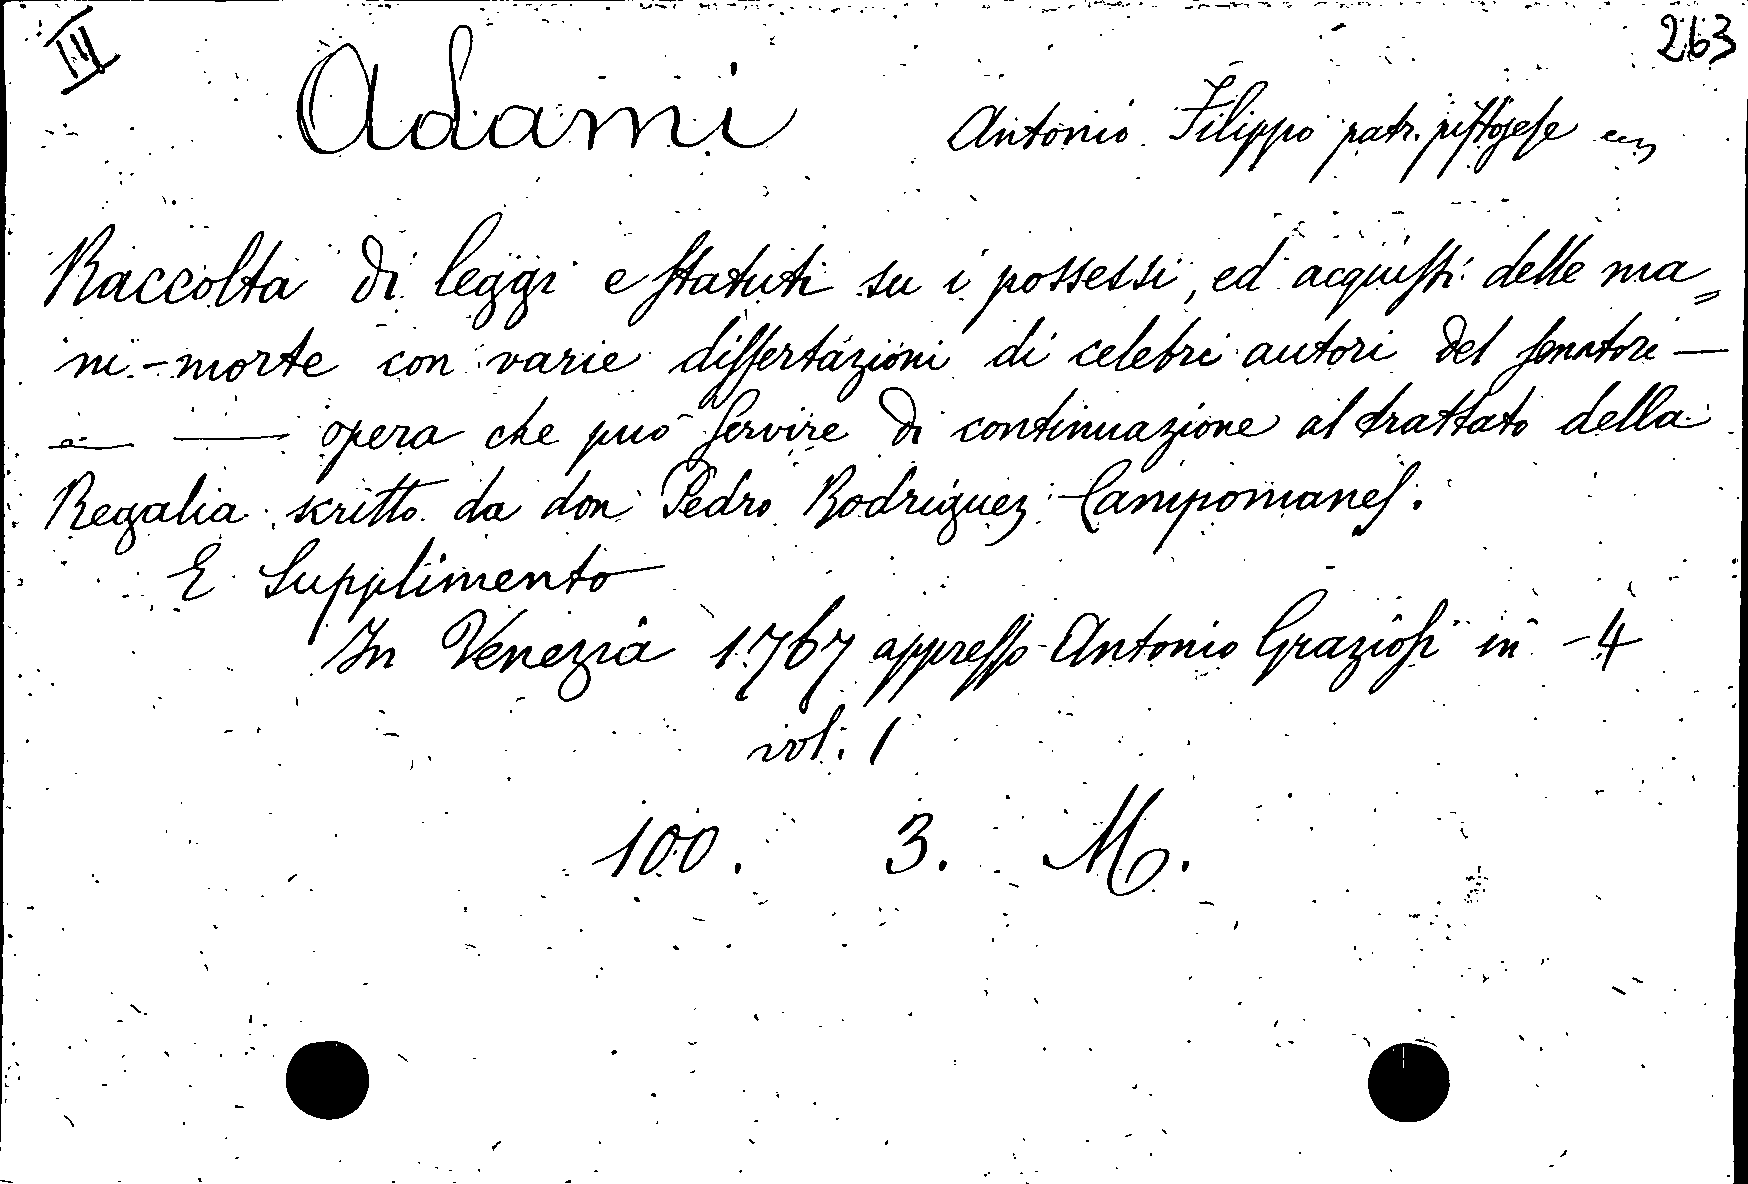 III 263
Adami Antonio Filippo patr. pistojese
Raccolta di leggi e statuti su i possessi, ed acquisti delle ma=
ni-morte con varie dissertazioni di celebri autori del senatore —
— — opera che può servire di continuazione al trattato della
Regalia scritto da don Pedro Rodriguez Campomanes.
E Supplimento
In Venezia 1767 appresso Antonio Graziosi in -4
vol. 1
100. 3. M.